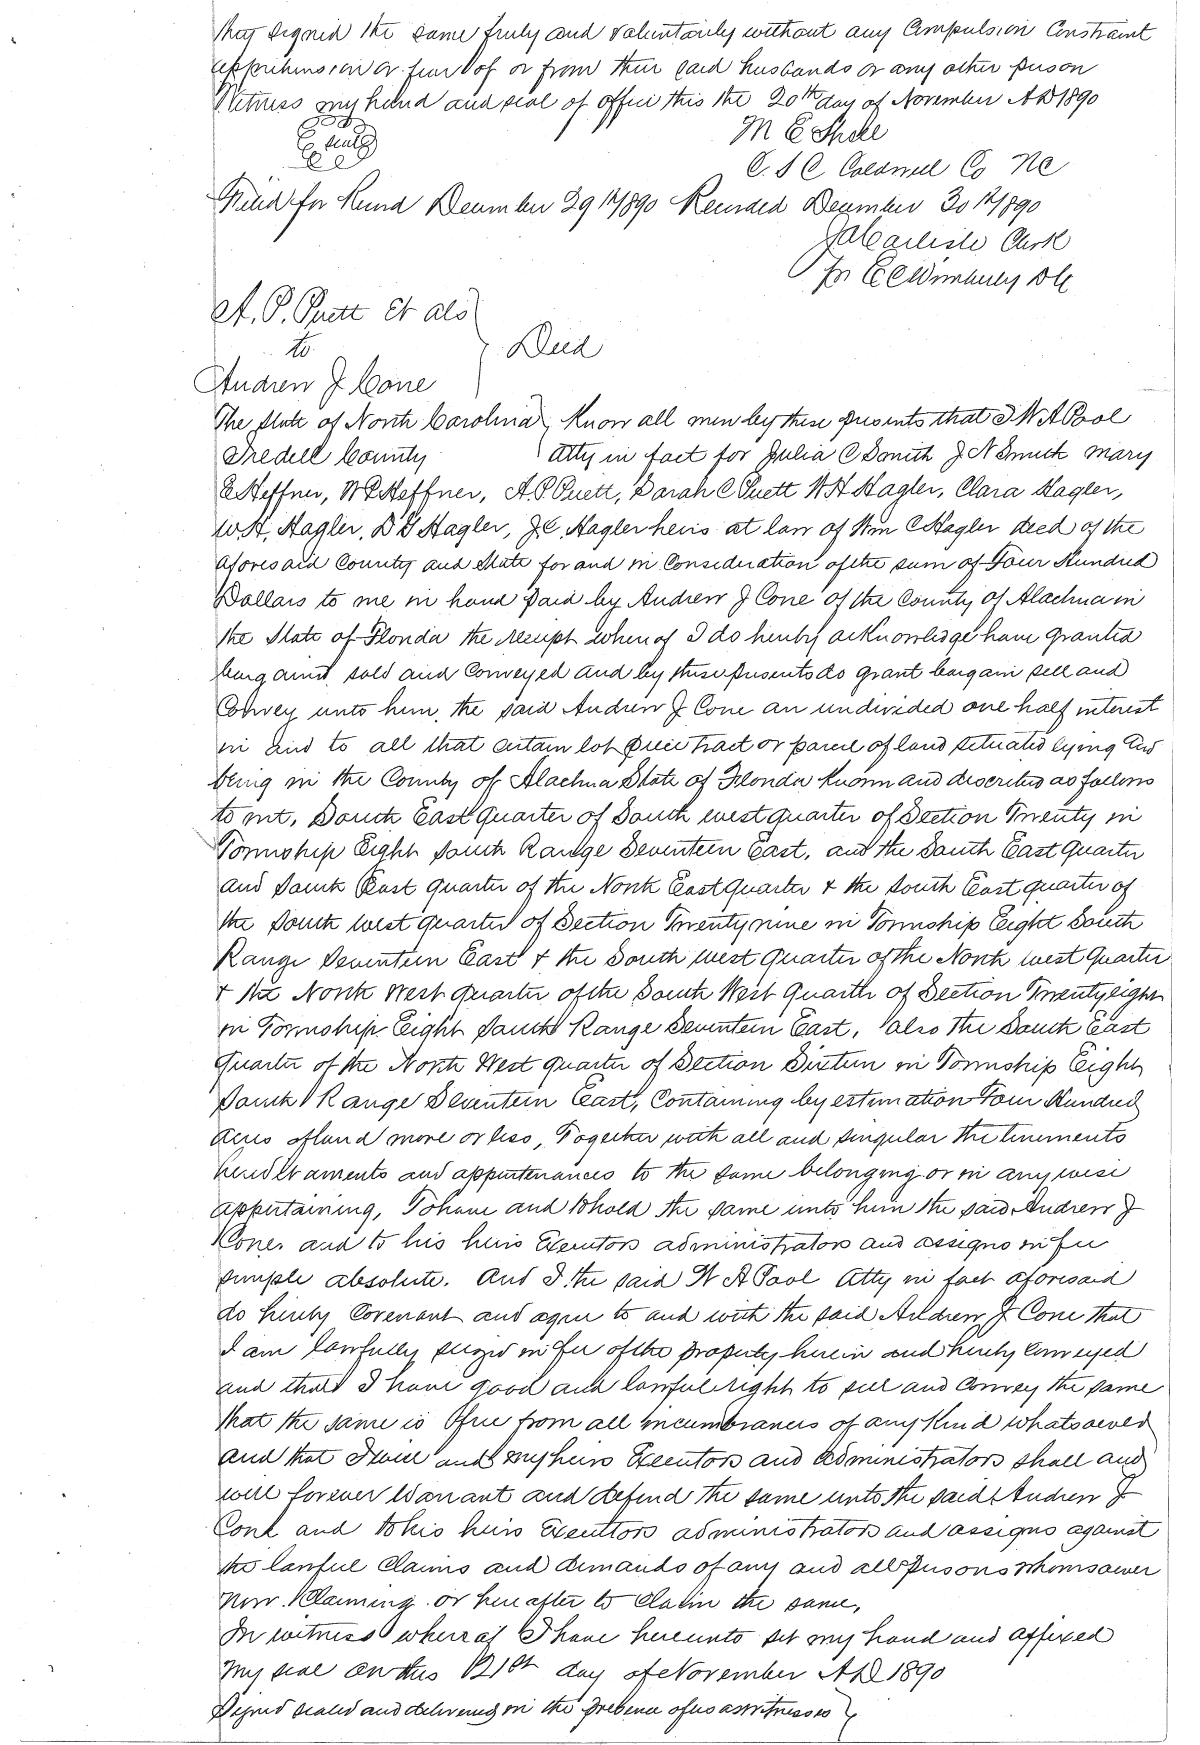 they signed the same freely and voluntarily without any Compulsion Constraint
apprehension or fear of or from their said husbands or any other person
Witness my hand and seal of office this the 20th day of November AD 1890
seal
M E Shell
C. S C Caldwell Co NC
Filed for Record December 29th 1890 Recorded December 30th 1890
J A Carlisle Clerk
per E C Wimberley DC
A. P. Puett Et als
to
Deed
Andrew J Cone
The State of North Carolina } Know all men by these presents that I W A Pool
Iredell County } Atty in fact for Julia C Smith J N Smith Mary
E Heffner, W P Heffner, A. P Puett, Sarah C Puett W H Hagler, Clara Hagler,
W. H, Hagler, D G Hagler, J. C. Hagler heirs at law of Wm C Hagler decd of the
aforesaid County and State for and in Consideration of the sum of Four Hundred
Dollars to me in hand paid by Andrew J Cone of the County of Alachua in
the State of Florida the receipt whereof I do hereby acknowledge have granted
bargained sold and Conveyed and by these presents do grant bargain sell and
Convey unto him, the said Andrew J Cone an undivided one half interest
in and to all that certain lot piece tract or parcel of land situated lying and
being in the County of Alachua State of Florida Known and described as follows
to wit, South East quarter of South west quarter of Section Twenty in
Township Eight South Range Seventeen East, and the South East Quarter
and South East quarter of the North East Quarter & the South East quarter of
the South west quarter of Section Twenty nine in Township Eight South
Range Seventeen East & the South west Quarter of the North west Quarter
& the North West quarter of the South West Quarter of Section Twenty eight
in Township Eight South Range Seventeen East, also the South East
Quarter of the North West quarter of Section Sixteen in Township Eight
South Range Seventeen East, Containing by estimation Four Hundred
Acres of land more or less, Together with all and singular the tenements
hereditaments and appurtenances to the same belonging or in any wise
appertaining, To have and to hold the same unto him the said Andrew J
Cone, and to his heirs Executors administrators and assigns in fee
simple absolute. And I the said W A Pool Atty in fact aforesaid
do hereby Covenant and agree to and with the said Andrew J Cone that
I am lawfully seized in fee of the property herein and hereby Conveyed
and that I have good and lawful right to sell and Convey the same
that the same is free from all incumbrances of any Kind whatsoever
and that I will and my heirs Executors and administrators shall and
will forever Warrant and defend the same unto the said Andrew J
Cone and to his heirs Executors administrators and assigns against
the lawful Claims and demands of any and all persons whomsoever
now Claiming or here after to Claim the same,
In witness whereof I have hereunto set my hand and affixed
my seal on this 21st day of November AD 1890
Signed sealed and delivered in the presence of us as witnesses }